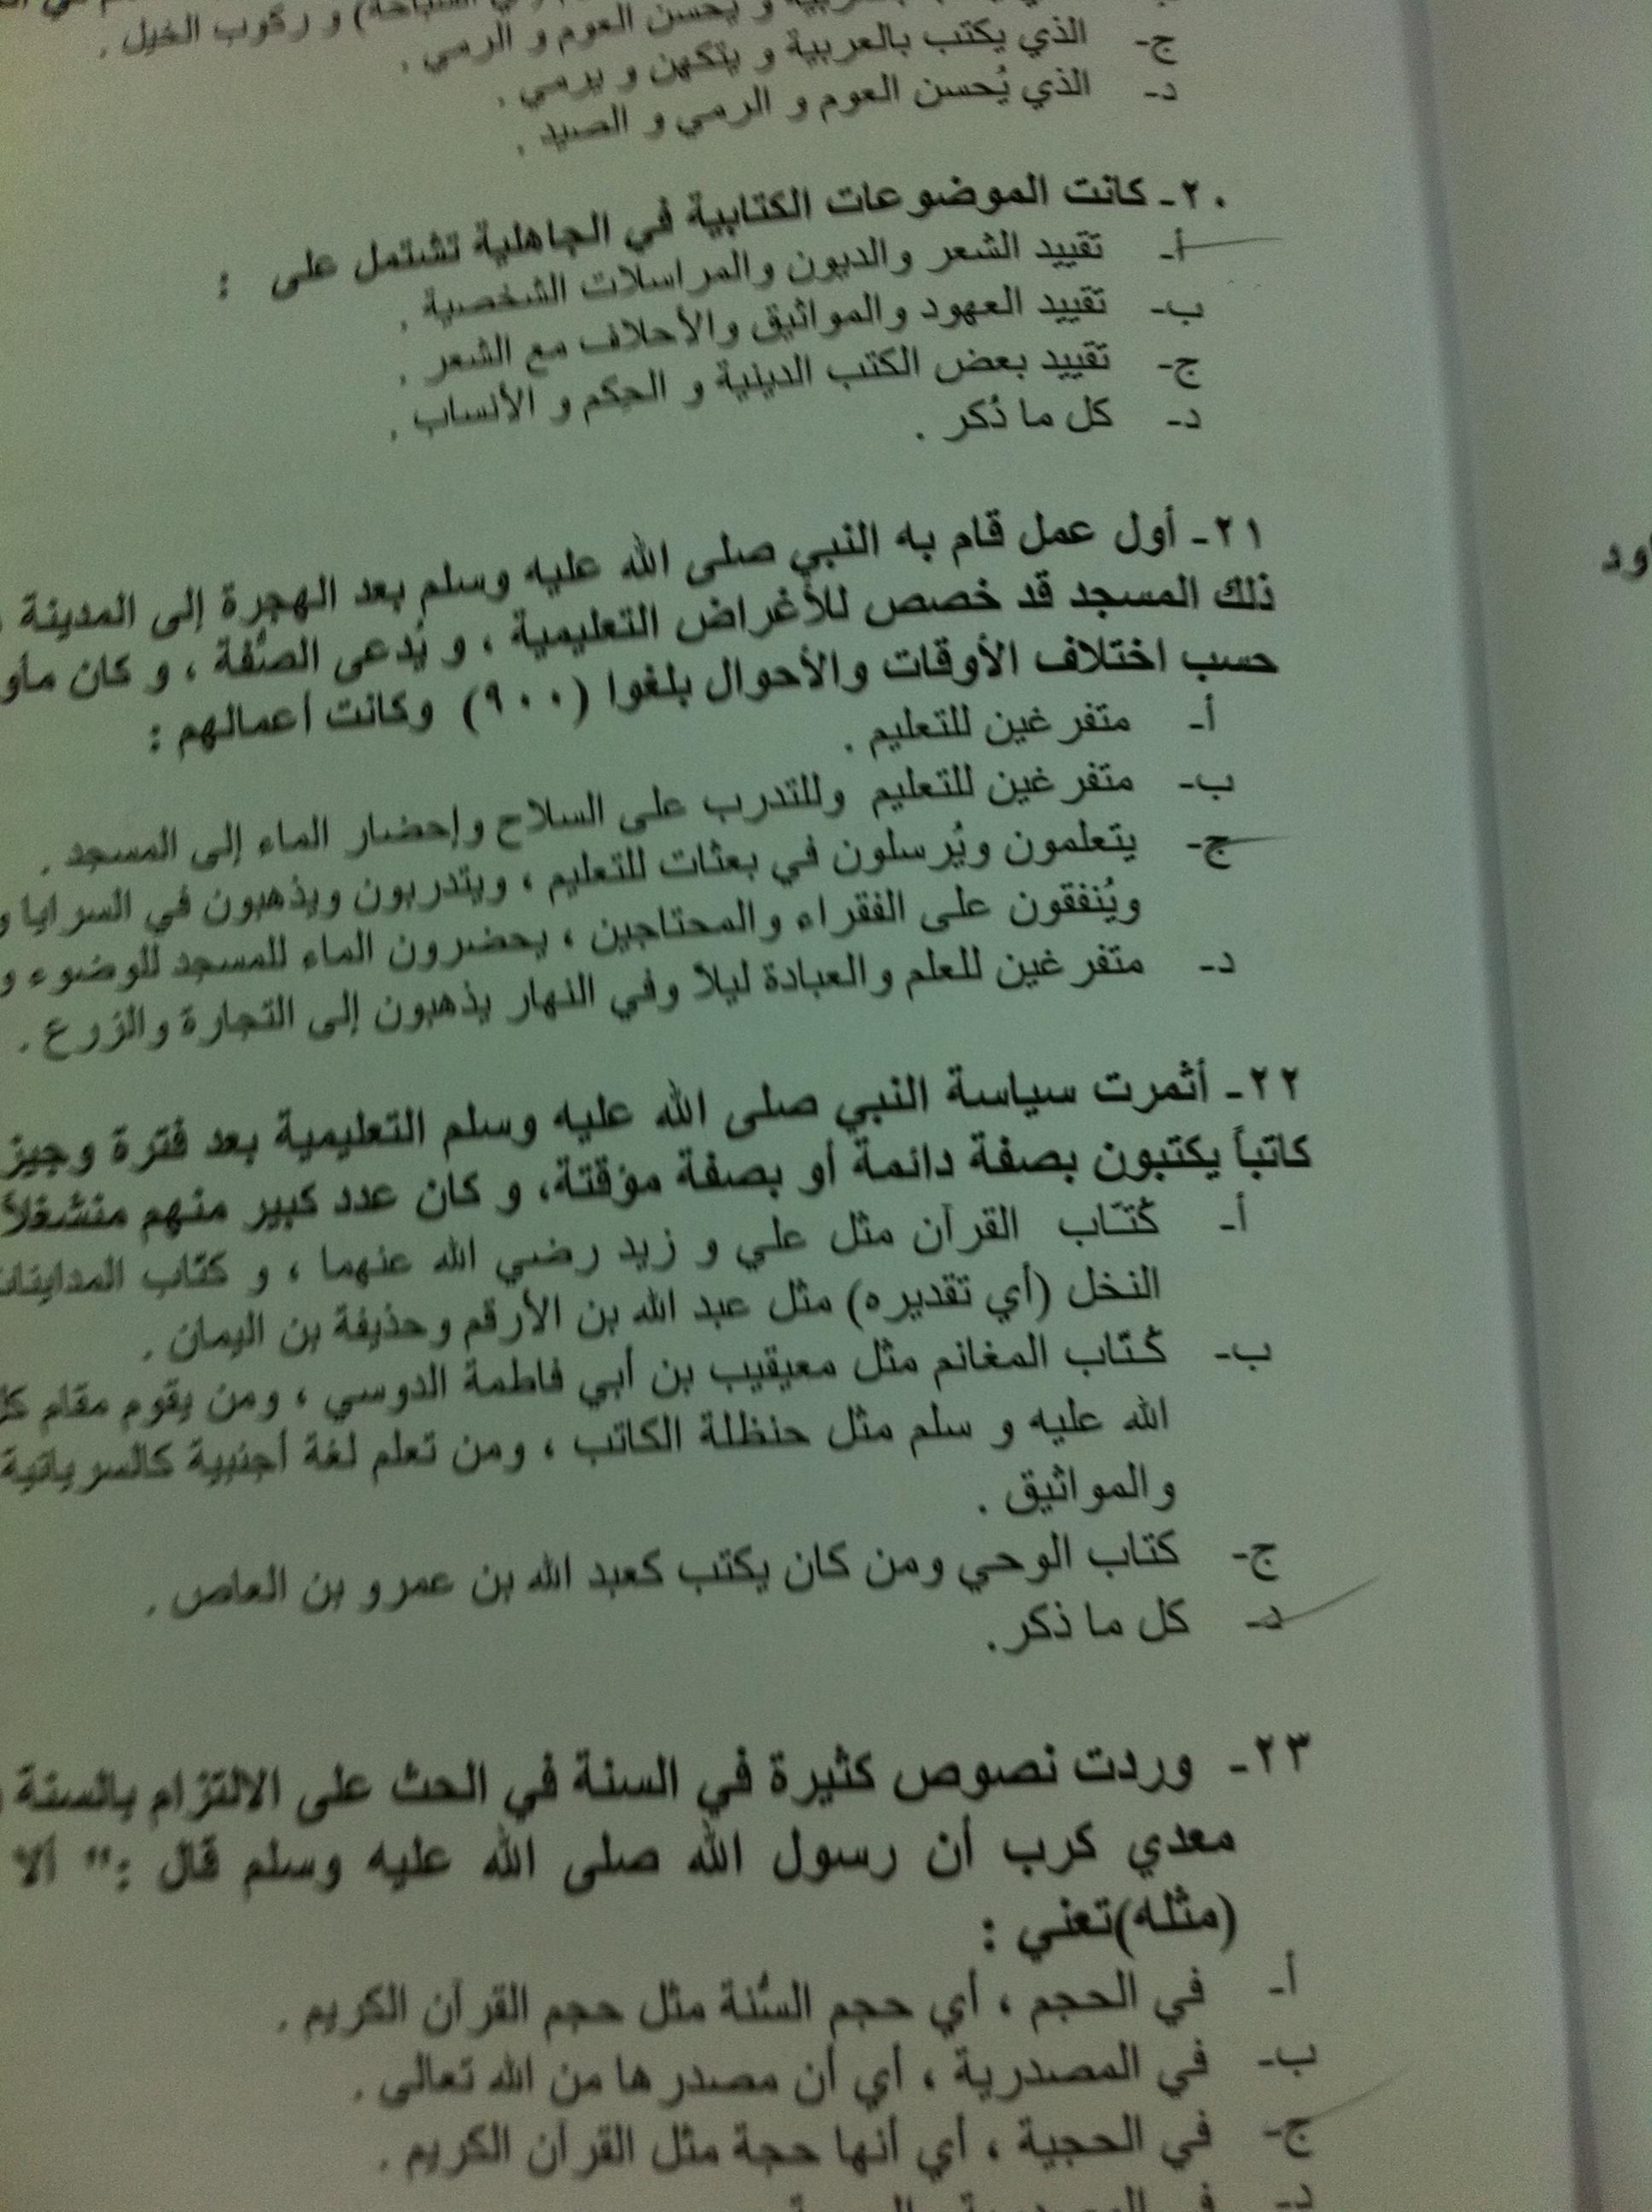 يحسن العوم و الرمي و ركوب الخيل .
ج- الذي يكتب بالعربية و يتكهن و يرمي .
د- الذي يُحسن العوم و الرمي و الصيد .
٢٠- كانت الموضوعات الكتابية في الجاهلية تشتمل على :
أ- تقييد الشعر والديون والمراسلات الشخصية .
ب- تقييد العهود والمواثيق والأحلاف مع الشعر .
ج- تقييد بعض الكتب الدينية و الحِكم و الأنساب .
د- كل ما ذُكر .
٢١- أول عمل قام به النبي صلى الله عليه وسلم بعد الهجرة إلى المدينة
ذلك المسجد قد خصص للأغراض التعليمية ، و يُدعى الصُّفة ، و كان مأو
حسب اختلاف الأوقات والأحوال بلغوا (٩٠٠) وكانت أعمالهم :
أ- متفرغين للتعليم .
ب- متفرغين للتعليم وللتدرب على السلاح وإحضار الماء إلى المسجد .
ج- يتعلمون ويُرسلون في بعثات للتعليم ، ويتدربون ويذهبون في السرايا و
ويُنفقون على الفقراء والمحتاجين ، يحضرون الماء للمسجد للوضوء و
د- متفرغين للعلم والعبادة ليلاً وفي النهار يذهبون إلى التجارة والزرع .
٢٢- أثمرت سياسة النبي صلى الله عليه وسلم التعليمية بعد فترة وجيز
كاتباً يكتبون بصفة دائمة أو بصفة مؤقتة، و كان عدد كبير منهم منشغلاً
أ- كُتّاب القرآن مثل علي و زيد رضي الله عنهما ، و كتّاب المداينات
النخل (أي تقديره) مثل عبد الله بن الأرقم وحذيفة بن اليمان .
ب- كُتّاب المغانم مثل معيقيب بن أبي فاطمة الدوسي ، ومن يقوم مقام كل
الله عليه و سلم مثل حنظلة الكاتب ، ومن تعلم لغة أجنبية كالسريانية
والمواثيق .
ج- كتاب الوحي ومن كان يكتب كعبد الله بن عمرو بن العاص .
د- كل ما ذكر.
٢٣- وردت نصوص كثيرة في السنة في الحث على الالتزام بالسنة
معدي كرب أن رسول الله صلى الله عليه وسلم قال :" ألا
(مثله)تعني :
أ- في الحجم ، أي حجم السُّنة مثل حجم القرآن الكريم .
ب- في المصدرية ، أي أن مصدرها من الله تعالى .
ج- في الحجية ، أي أنها حجة مثل القرآن الكريم .
اود